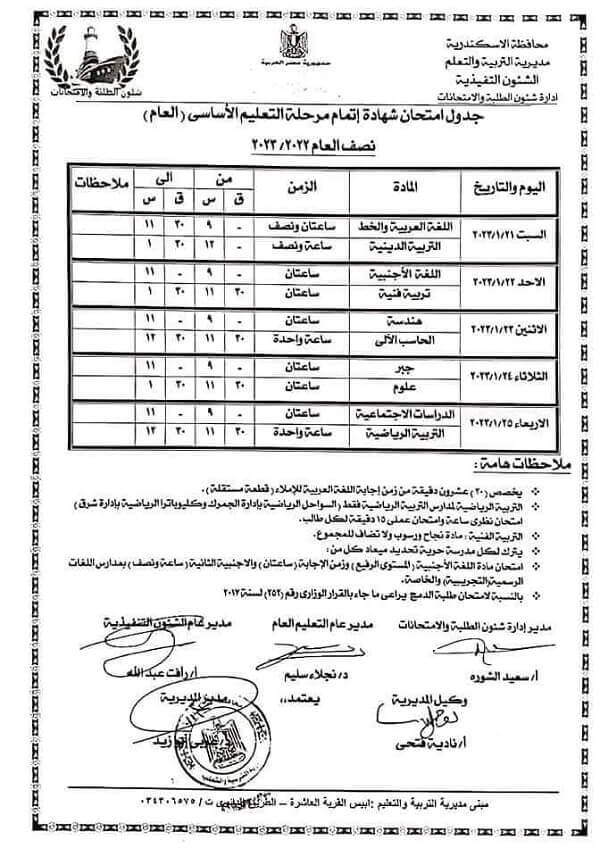 محافظة الاسكندرية
مديرية التربية والتعلم
الشئون التنفيذية
ادارة شئون الطلبة والامتحانات
جمهورية مصر العربية
شئون الطلبة والامتحانات
جدول امتحان شهادة إتمام مرحلة التعليم الأساسى (العام)
نصف العام ٢٠٢٣/٢٠٢٢
اليوم والتاريخ المادة الزمن من الى ملاحظات
ق س ق س
السبت ٢٠٢٣/١/٢١ اللغة العربية والخط ساعتان ونصف - ٩ ٣٠ ١١
التربية الدينية ساعة ونصف - ١٢ ٣٠ ١
الاحد ٢٠٢٣/١/٢٢ اللغة الأجنبية ساعتان - ٩ - ١١
تربية فنية ساعتان ٣٠ ١١ ٣٠ ١
الاثنين ٢٠٢٣/١/٢٣ هندسة ساعتان - ٩ - ١١
الحاسب الألى ساعة واحدة ٣٠ ١١ ٣٠ ١٢
الثلاثاء ٢٠٢٣/١/٢٤ جبر ساعتان - ٩ - ١١
علوم ساعتان ٣٠ ١١ ٣٠ ١
الاربعاء ٢٠٢٣/١/٢٥ الدراسات الاجتماعية ساعتان - ٩ - ١١
التربية الرياضية ساعة واحدة ٣٠ ١١ ٣٠ ١٢
ملاحظات هامة :
يخصص (٢٠) عشرون دقيقة من زمن إجابة اللغة العربية للإملاء (قطعة مستقلة).
التربية الرياضية لمدارس التربية الرياضية فقط (السواحل الرياضية بإدارة الجمرك وكليوباترا الرياضية بإدارة شرق)
امتحان نظرى ساعة وامتحان عملى ١٥ دقيقة لكل طالب.
التربية الفنية : مادة نجاح ورسوب ولا تضاف للمجموع.
يترك لكل مدرسة حرية تحديد ميعاد كل من :
امتحان مادة اللغة الأجنبية (المستوى الرفيع) وزمن الإجابة (ساعتان) والاجنبية الثانية (ساعة ونصف) بمدارس اللغات
الرسمية(التجريبية) والخاصة.
بالنسبة لامتحان طلبة الدمج يراعى ما جاء بالقرار الوزارى رقم (٢٥٢) لسنة ٢٠١٧
مدير إدارة شئون الطلبة والامتحانات مدير عام التعليم العام مدير عام الشئون التنفيذية
أ/ سعيد الشوره د/ نجلاء سليم أ/ رأفت عبدالله
وكيل المديرية يعتمد،، مدير المديرية
أ/ نادية فتحى
مبنى مديرية التربية والتعليم : ابيس القرية العاشرة – ت / ٠٣٤٣٠٦٥٧٥